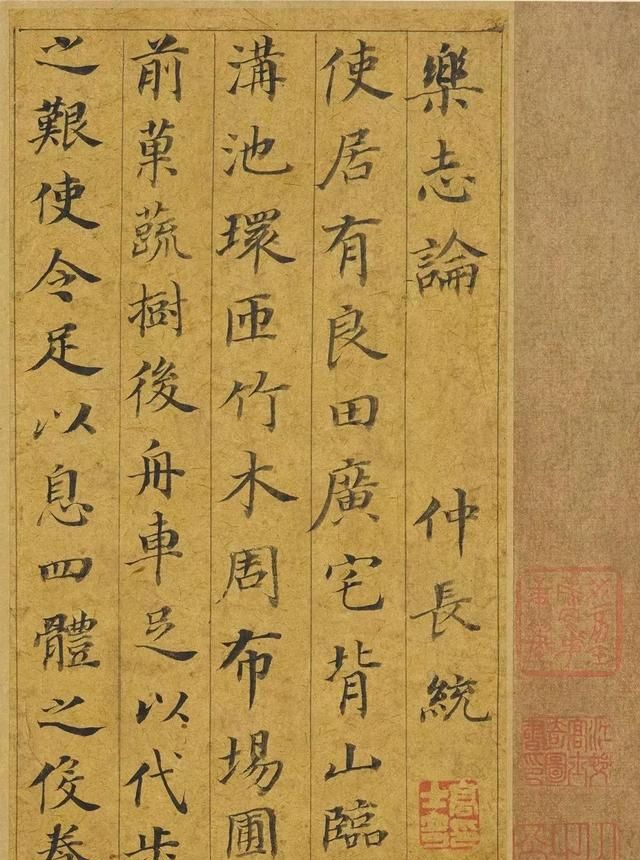 樂志論 仲長統
使居有良田廣宅背山臨
溝池環匝竹木周布場圃
前菓蔬樹後舟車足以代步
之艱使令足以息四體之役養